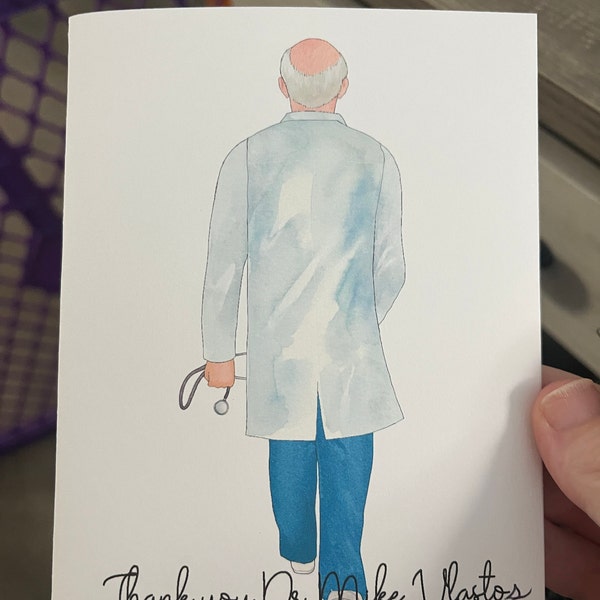 Thank you Dr Mike Vlastos